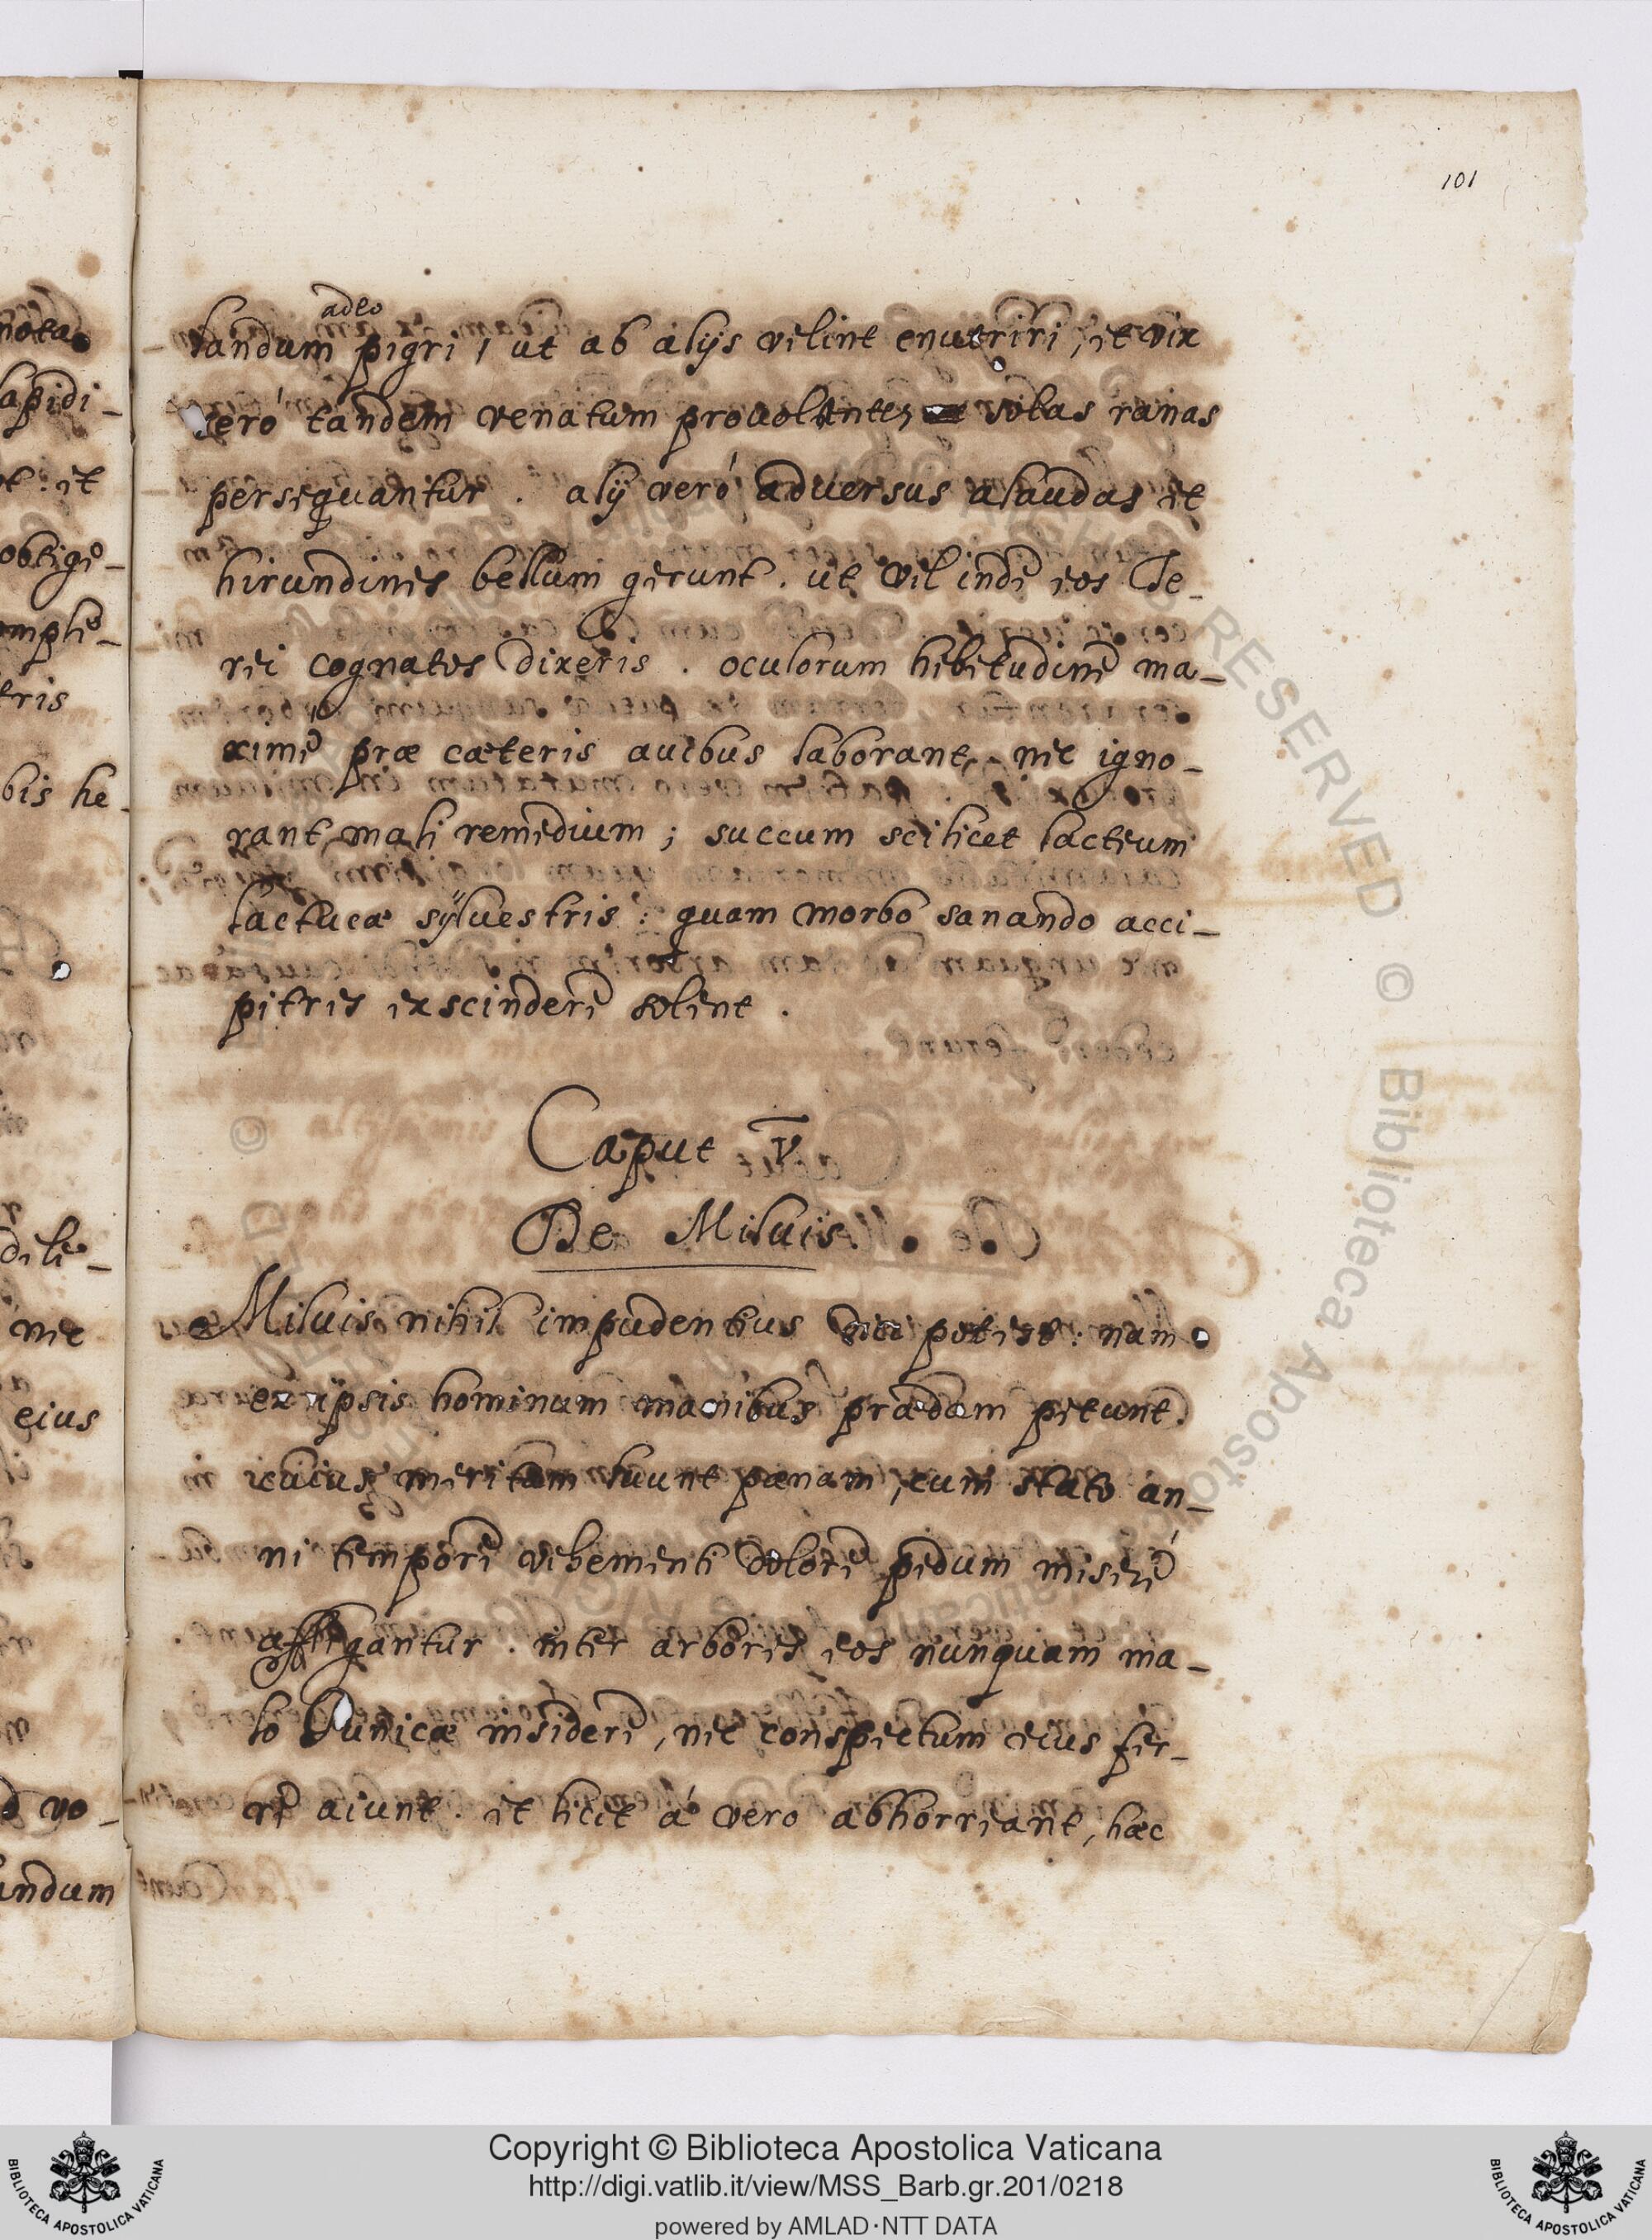 101
adeo
landum pigri, ut ab alijs velint enutriri, et vix
veró tandem venatum prouolantes solas ranas
persequantur. alij veró aduersus alaudas et
hirundines bellum gerunt. ut vel inde eos Te_
rei cognatos dixeris. oculorum hebetudine ma_
xime præ cæteris auibus laborant, nec igno_
rant mali remedium; succum scilicet lacteum
lactucæ syluestris: quam morbo sanando acci_
pitres exscindere solent.
Caput V
De Miluis.
Miluis nihil impudentius dici potest: nam
ex ipsis hominum manibus prædam petunt.
cuius meritam luunt pœnam, cum stato an_
ni tempore vehementi dolore pedum miseré
affligantur. inter arbores eos nunquam ma_
lo Punicæ insidere, nec conspectum eius fer_
re aiunt. et licet á vero abhorreant, hæc
nota
apidi_
t. et
obtige_
omple_
tris
bis he_
dile_
nec
eius
d vo_
undum
Copyright © Biblioteca Apostolica Vaticana
http://digi.vatlib.it/view/MSS_Barb.gr.201/0218
powered by AMLAD·NTT DATA
BIBLIOTECA APOSTOLICA VATICANA
BIBLIOTECA APOSTOLICA VATICANA